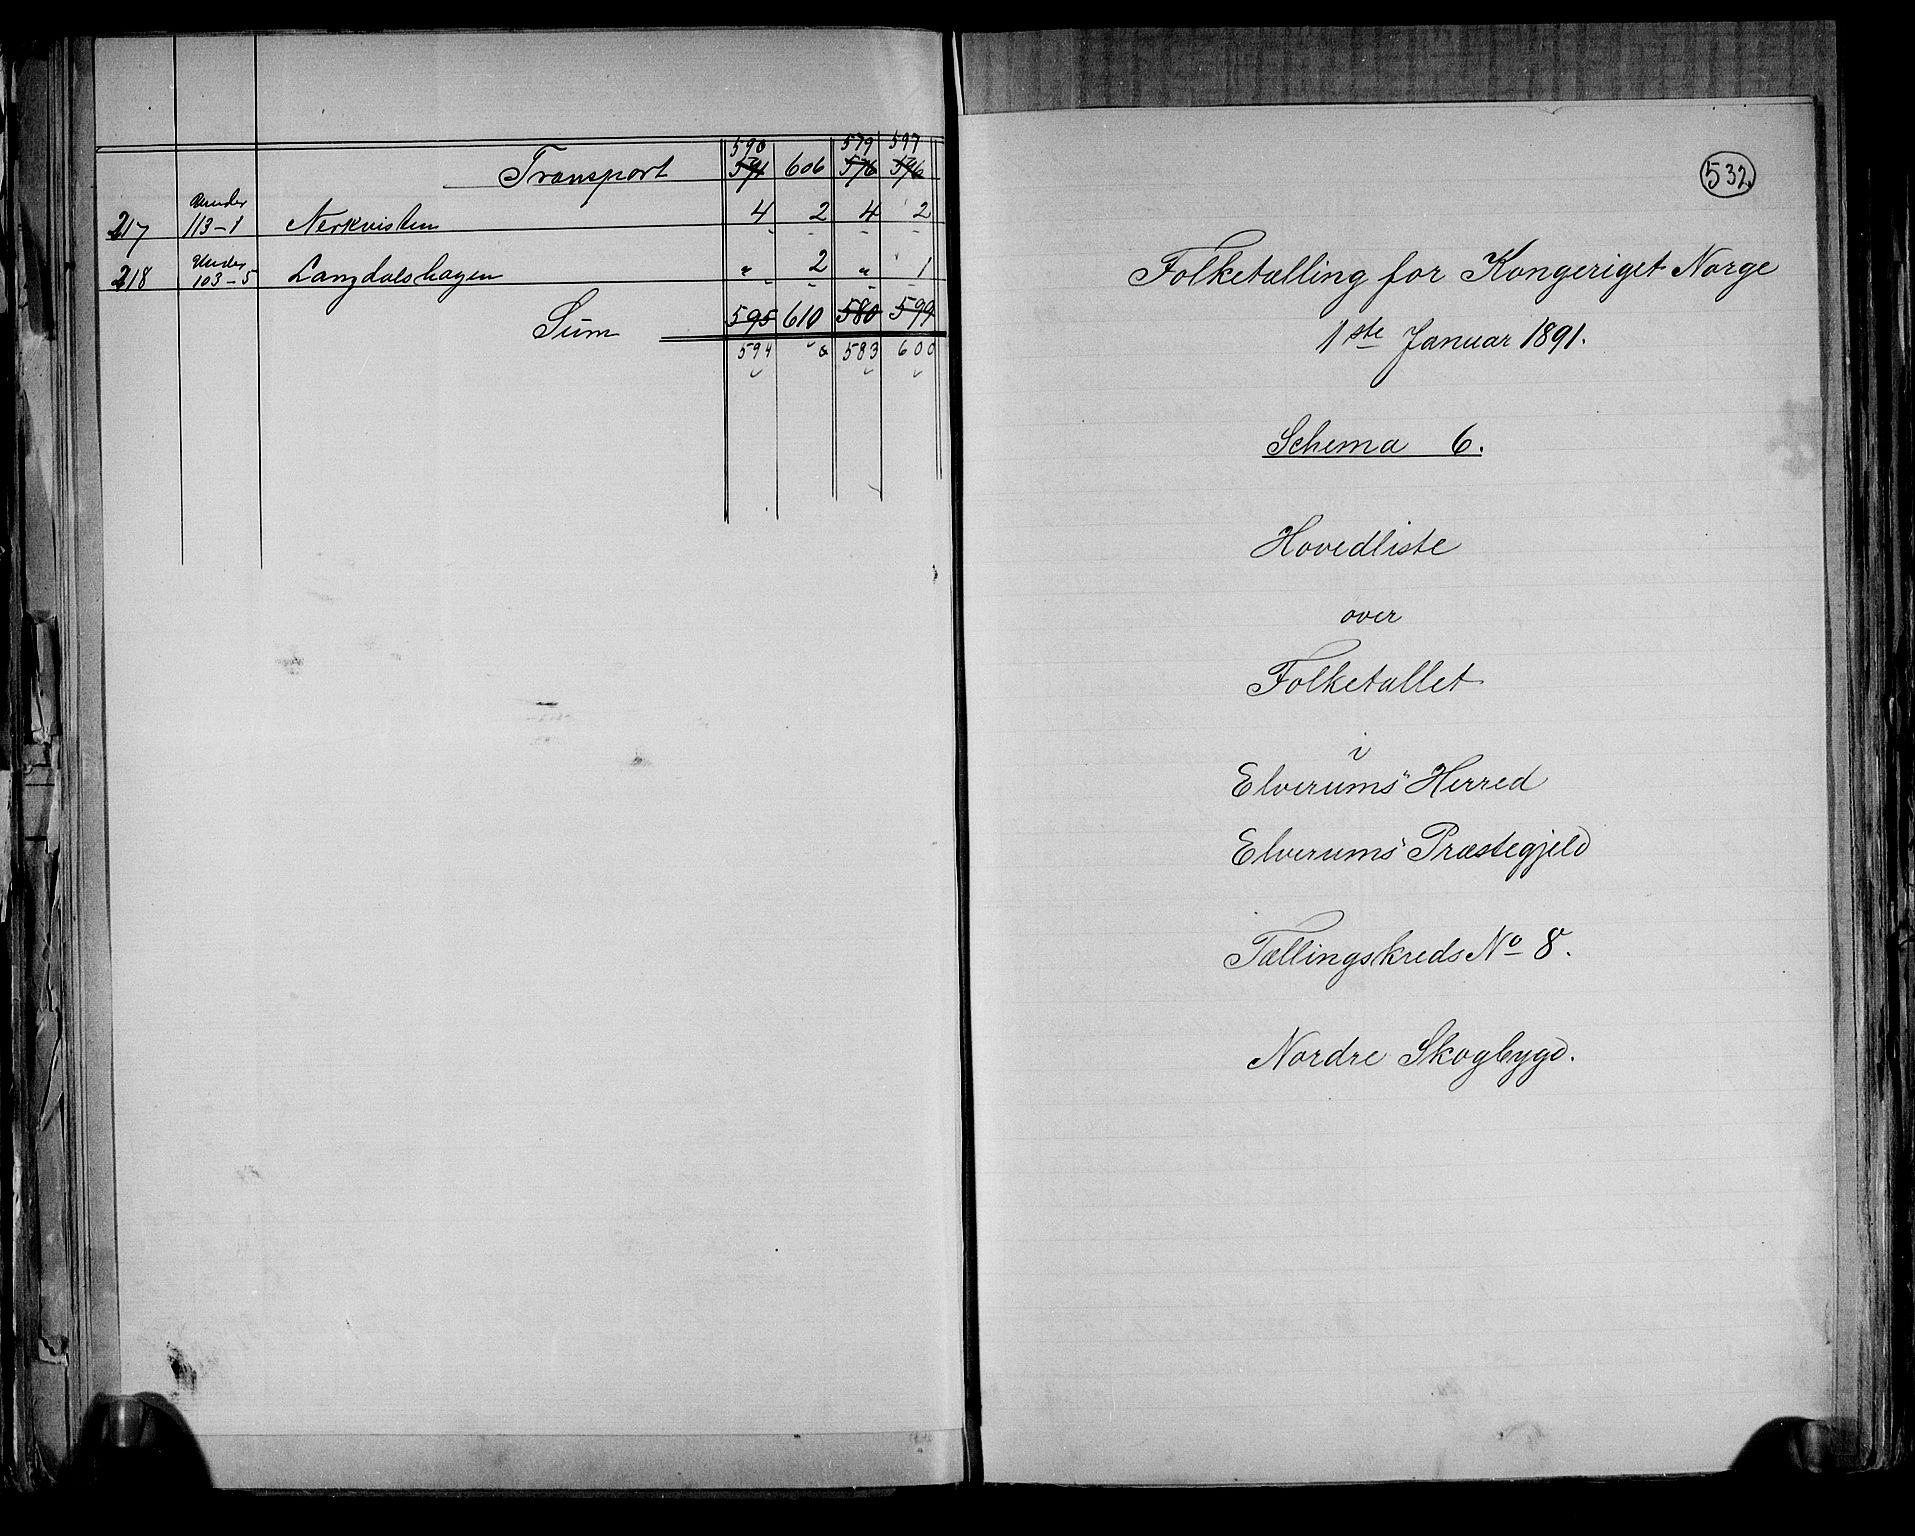 590 579 597
Transport 591 606 576 596
217 Under 113-1 Nerkvisten 4 2 4 2
218 Under 103-5 Langdalshagen " 2 " 1
Sum 595 610 580 599
594 583 600
532
Folketælling for Kongeriget Norge
1ste Januar 1891.
Schema 6.
Hovedliste
over
Folketallet
i
Elverums Herred
Elverums Præstegjeld
Tællingskreds No 8.
Nordre Skogbygd.